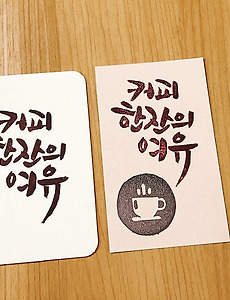 커피
한잔의
여유
커피
한잔의
여유